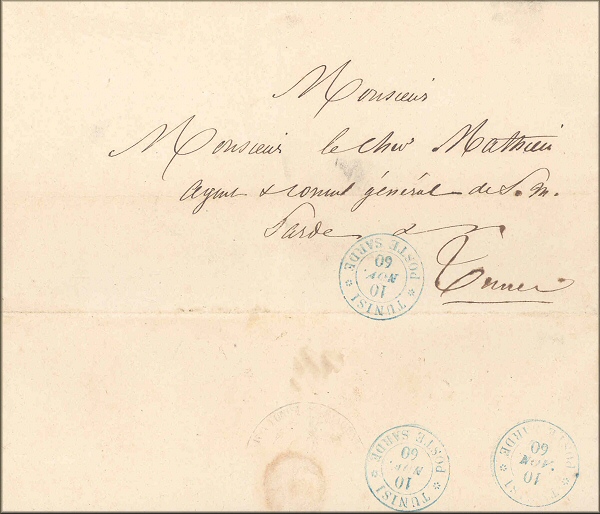 Monsieur
Monsieur le Chev Mathieu
agent & consul général de S. M.
Sarde &
Tunis
TUNISI
10
NOV.
60
POSTE SARDE
TUNISI
10
NOV.
60
POSTE SARDE
10
NOV.
60
RDE